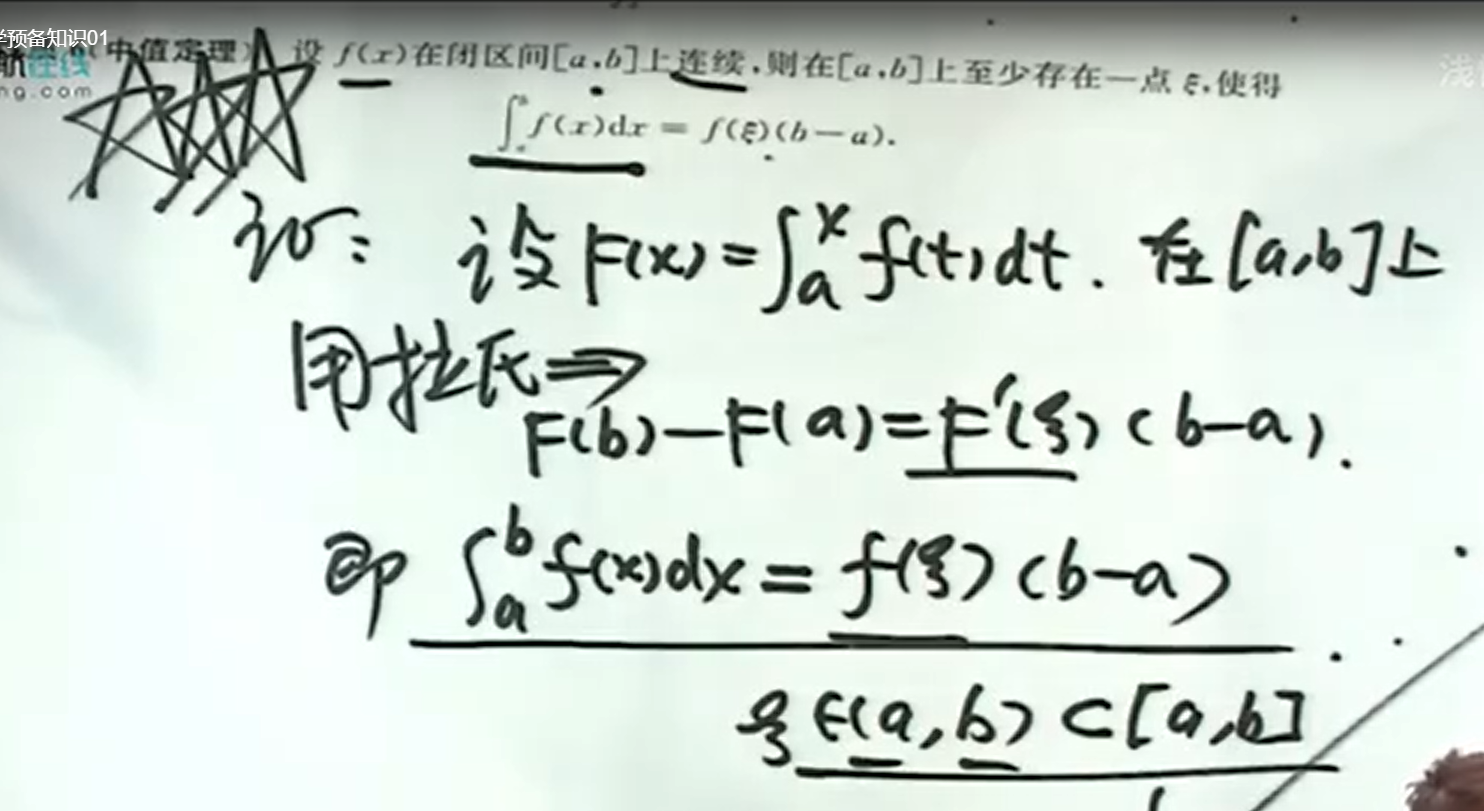 学预备知识01
中值定理) 设 f(x)在闭区间[a,b]上连续,则在[a,b]上至少存在一点 ξ,使得
航在线
ng.com
∫ₐᵇ f(x)dx = f(ξ)(b－a).
证: 设 F(x)=∫ₐˣ f(t)dt. 在[a,b]上
用拉氏⇒
F(b)－F(a)=F'(ξ)(b-a).
即 ∫ₐᵇ f(x)dx = f(ξ)(b-a)
ξ∈(a,b)⊂[a,b]